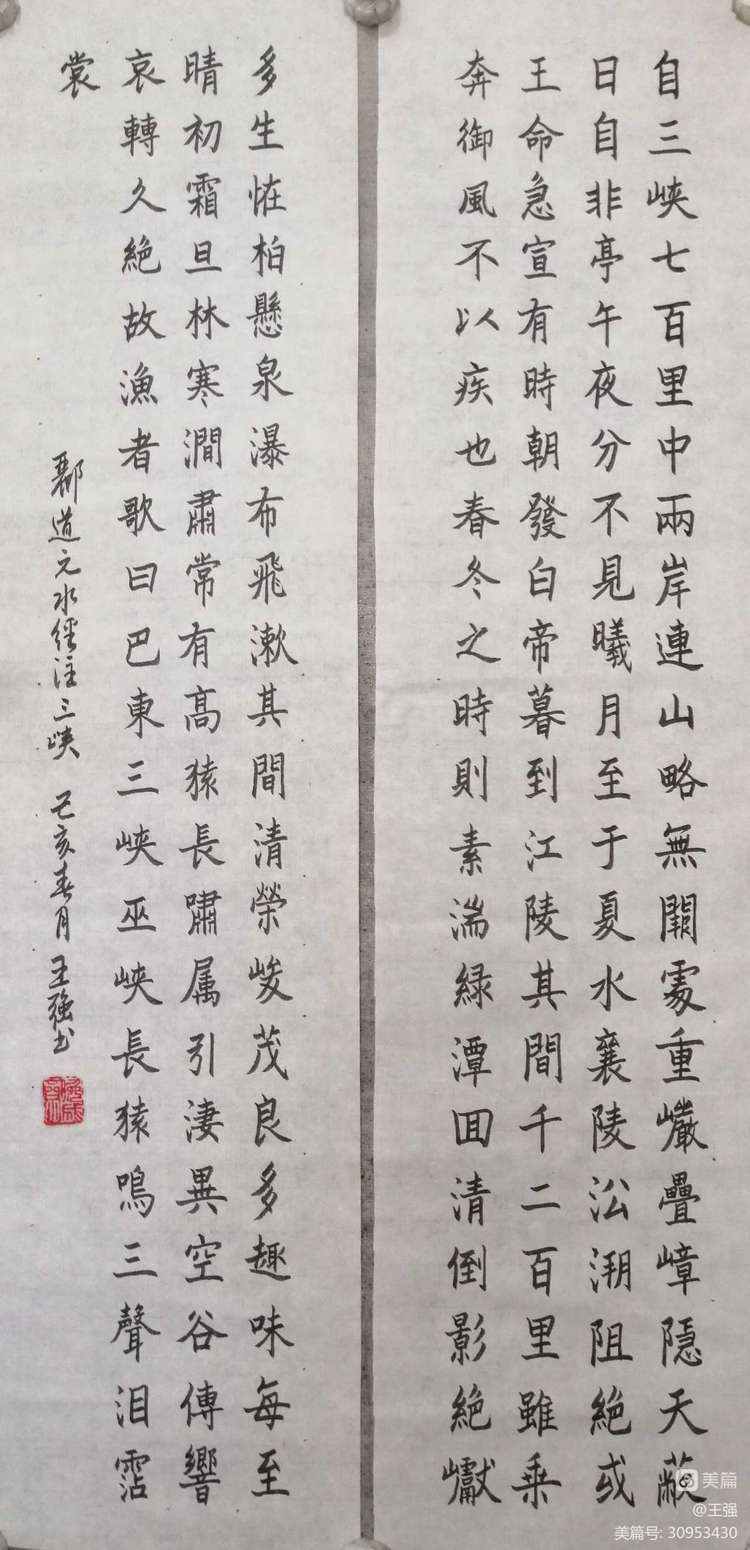 自三峽七百里中兩岸連山略無闕處重巖疊嶂隱天蔽
日自非亭午夜分不見曦月至于夏水襄陵沿溯阻絕或
王命急宣有時朝發白帝暮到江陵其間千二百里雖乘
奔御風不以疾也春冬之時則素湍綠潭回清倒影絕巘
多生恠柏懸泉瀑布飛漱其間清榮峻茂良多趣味每至
晴初霜旦林寒澗肅常有高猿長嘯属引淒異空谷傳響
哀轉久絕故漁者歌曰巴東三峽巫峽長猿鳴三聲泪霑
裳
酈道元水經注三峽 己亥春月 王强书
美篇
@王强
美篇号: 30953430